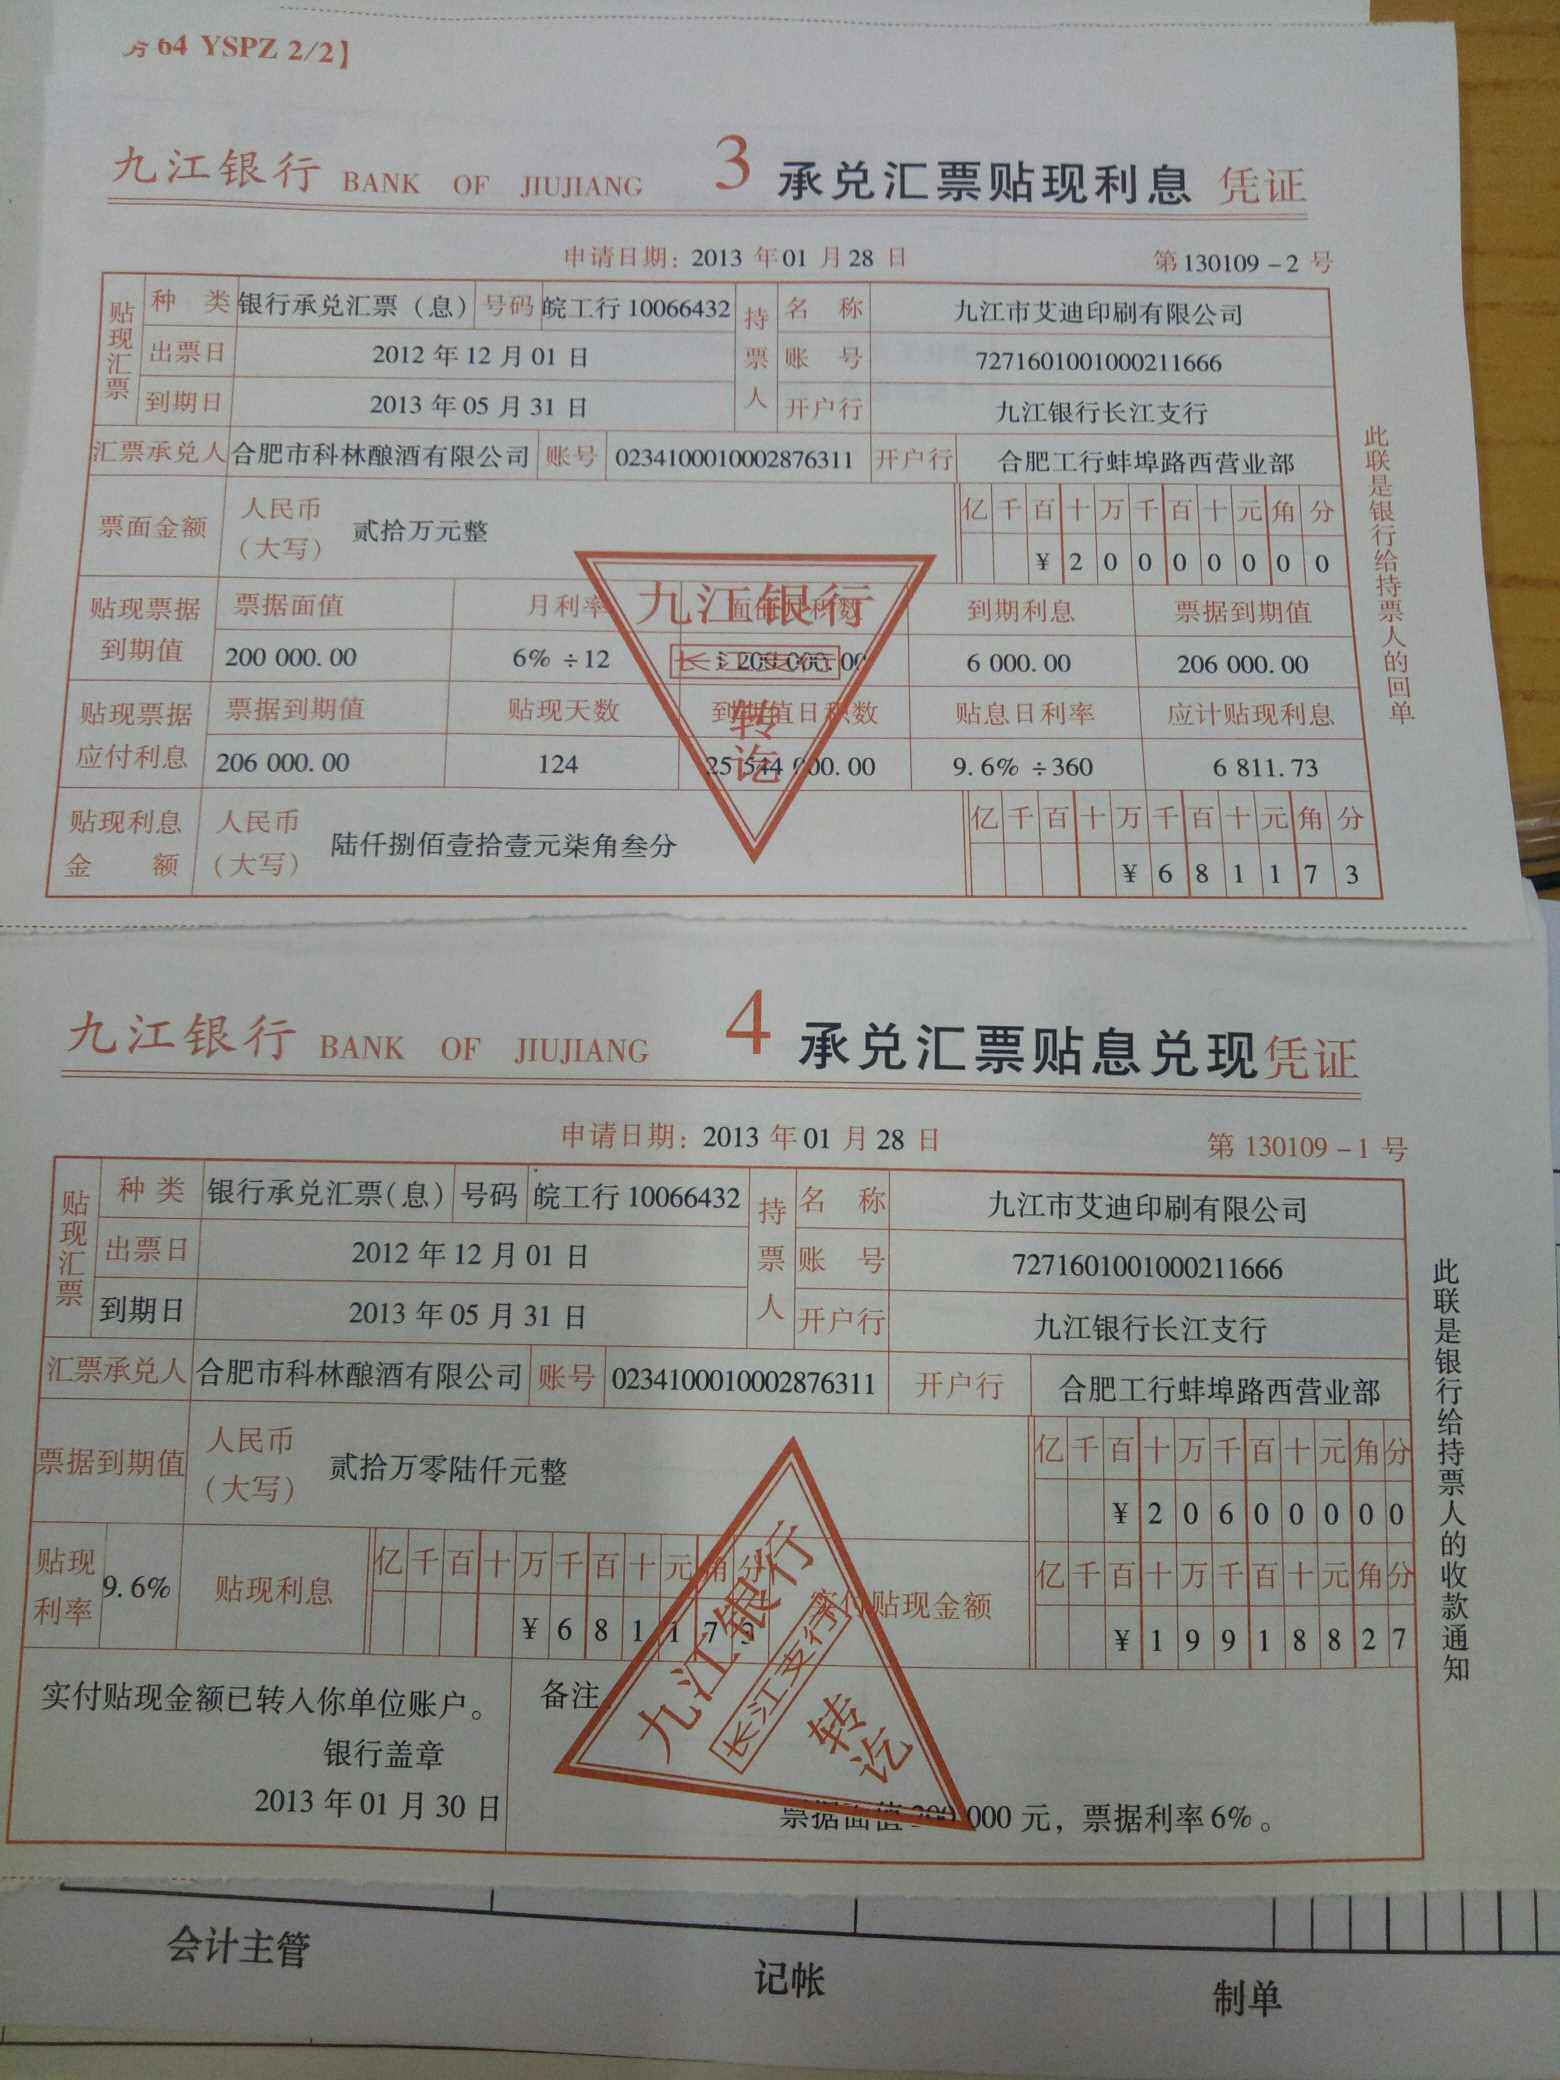 64 YSPZ 2/2】
九江银行 BANK OF JIUJIANG 3 承兑汇票贴现利息 凭证
申请日期：2013 年 01 月 28 日 第 130109－2 号
贴现汇票 种类 银行承兑汇票（息） 号码 皖工行 10066432 持票人 名称 九江市艾迪印刷有限公司
出票日 2012 年 12 月 01 日 账号 7271601001000211666
到期日 2013 年 05 月 31 日 开户行 九江银行长江支行
汇票承兑人 合肥市科林酿酒有限公司 账号 0234100010002876311 开户行 合肥工行蚌埠路西营业部
票面金额 人民币（大写） 贰拾万元整 亿 千 百 十 万 千 百 十 元 角 分
¥ 2 0 0 0 0 0 0 0
贴现票据到期值 票据面值 月利率 到期利息 票据到期值
200 000.00 6% ÷12 6 000.00 206 000.00
贴现票据应付利息 票据到期值 贴现天数 到期值日积数 贴息日利率 应计贴现利息
206 000.00 124 25 544 000.00 9.6% ÷360 6 811.73
贴现利息金额 人民币（大写） 陆仟捌佰壹拾壹元柒角叁分 亿 千 百 十 万 千 百 十 元 角 分
¥ 6 8 1 1 7 3
九江银行
转讫
此联是银行给持票人的回单
九江银行 BANK OF JIUJIANG 4 承兑汇票贴息兑现凭证
申请日期：2013 年 01 月 28 日 第 130109－1 号
贴现汇票 种类 银行承兑汇票（息） 号码 皖工行 10066432 持票人 名称 九江市艾迪印刷有限公司
出票日 2012 年 12 月 01 日 账号 7271601001000211666
到期日 2013 年 05 月 31 日 开户行 九江银行长江支行
汇票承兑人 合肥市科林酿酒有限公司 账号 0234100010002876311 开户行 合肥工行蚌埠路西营业部
票据到期值 人民币（大写） 贰拾万零陆仟元整 亿 千 百 十 万 千 百 十 元 角 分
¥ 2 0 6 0 0 0 0 0
贴现利率 9.6% 贴现利息 亿 千 百 十 万 千 百 十 元 角 分 实付贴现金额 亿 千 百 十 万 千 百 十 元 角 分
¥ 6 8 1 1 7 3 ¥ 1 9 9 1 8 8 2 7
实付贴现金额已转入你单位账户。 备注
银行盖章
2013 年 01 月 30 日 票据面值 200 000 元，票据利率 6%。
九江银行
长江支行
转讫
此联是银行给持票人的收款通知
会计主管 记帐 制单